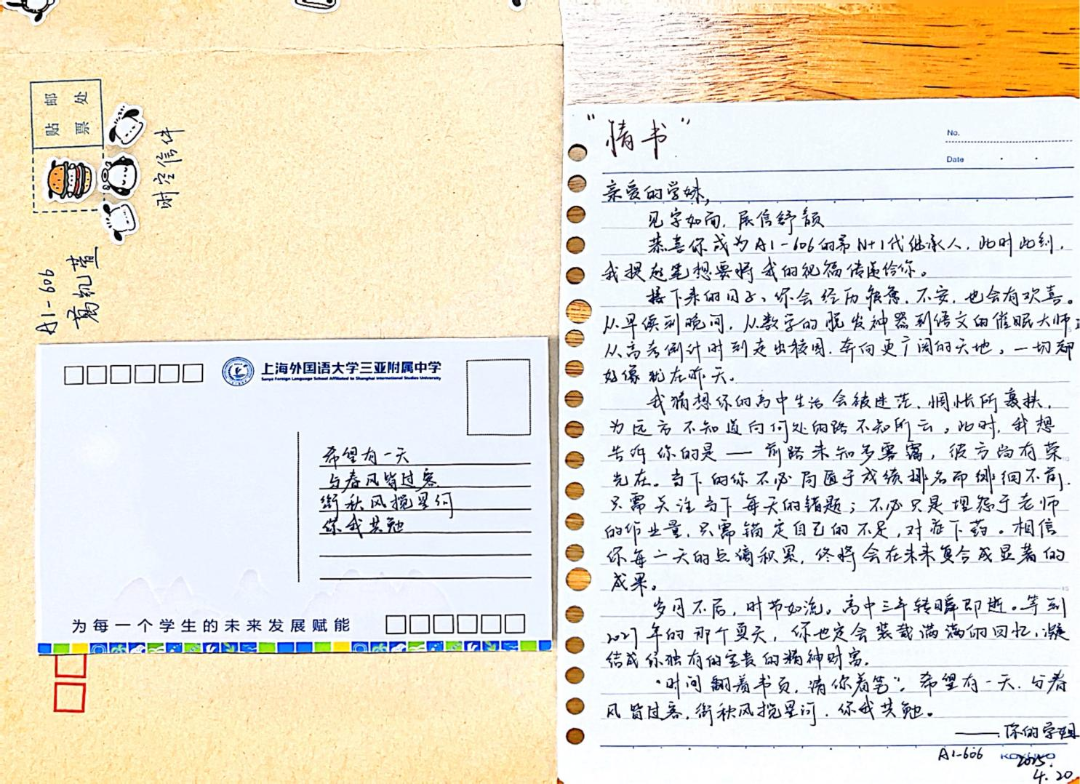 贴 邮
票 处
时空信件
A1-606
葛凯萱
上海外国语大学三亚附属中学
Sanya Foreign Language School Affiliated to Shanghai International Studies University
希望有一天
与春风皆过客
携秋风揽星河
你我共勉
为每一个学生的未来发展赋能
"情书"
No.
Date
亲爱的学妹,
见字如面,展信舒颜
恭喜你成为A1-606的第N+1代继承人,此时此刻,
我提起笔想要将我的祝福传递给你。
接下来的日子,你会经历疲惫、不安,也会有欢喜。
从早读到晚间,从数学的脱发神器到语文的催眠大师,
从高考倒计时到走出校园,奔向更广阔的天地,一切都
好像就在昨天。
我猜想你的高中生活会被迷茫、惆怅所裹挟,
为远方不知道向何处的路不知所云,此时,我想
告诉你的是——前路未知多雾霭,彼方尚有荣
光在。当下的你不必局囿于成绩排名而徘徊不前,
只需关注当下每天的错题;不必只是埋怨于老师
的作业量,只需锚定自己的不足,对症下药。相信
你每一天的点滴积累,终将会在未来复合成显著的
成果。
岁月不居,时节如流。高中三年转瞬即逝。等到
2027年的那个夏天,你也定会装载满满的回忆,凝
结成你独有的宝贵的精神财富。
"时间翻着书页,请你着笔"。希望有一天,与春
风皆过客,携秋风揽星河,你我共勉。
——你的学姐
A1-606
KOKUYO
2025.
4.20